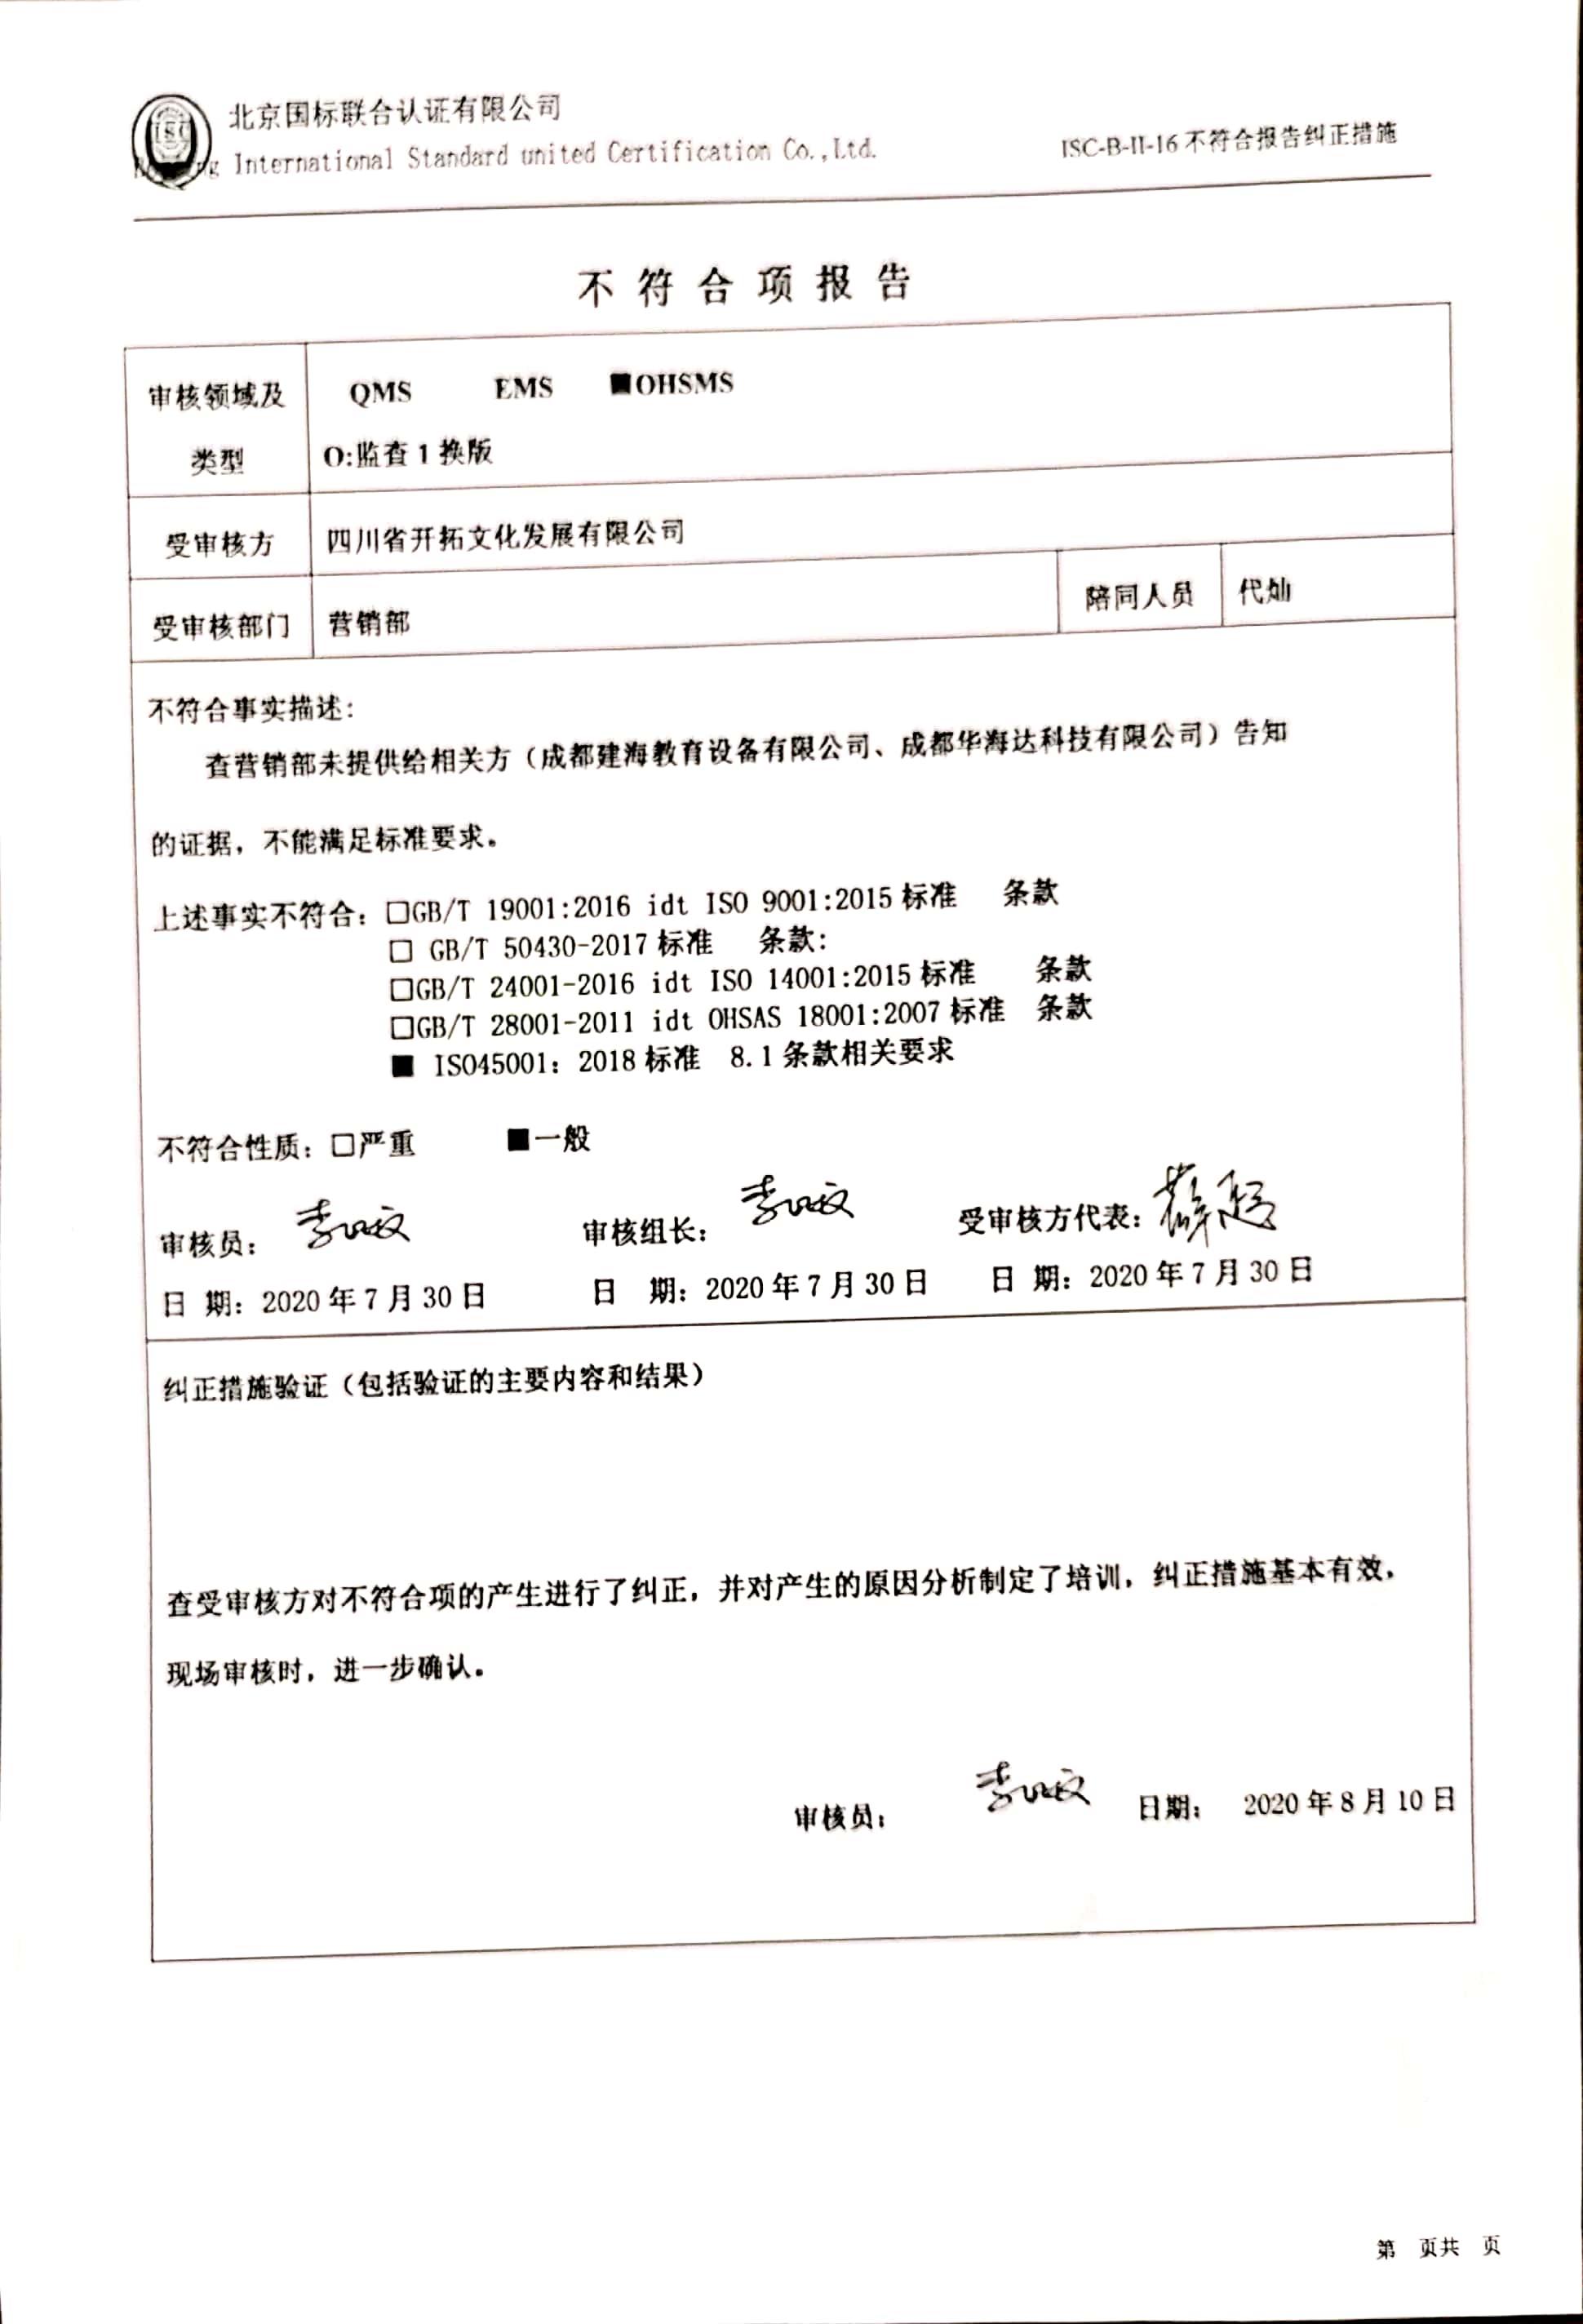 北京国标联合认证有限公司
Beijing International Standard united Certification Co.,Ltd.
ISC-B-II-16 不符合报告纠正措施
ISC
不符合项报告
审核领域及类型
QMS EMS ■OHSMS
O:监查1换版
受审核方 四川省开拓文化发展有限公司
受审核部门 营销部 陪同人员 代灿
不符合事实描述：
查营销部未提供给相关方（成都建海教育设备有限公司、成都华海达科技有限公司）告知
的证据，不能满足标准要求。
上述事实不符合：□GB/T 19001:2016 idt ISO 9001:2015 标准 条款
□ GB/T 50430-2017 标准 条款：
□GB/T 24001-2016 idt ISO 14001:2015 标准 条款
□GB/T 28001-2011 idt OHSAS 18001:2007 标准 条款
■ ISO45001：2018 标准 8.1 条款相关要求
不符合性质：□严重 ■一般
审核员： 审核组长： 受审核方代表：
日 期：2020 年 7 月 30 日 日 期：2020 年 7 月 30 日 日 期：2020 年 7 月 30 日
纠正措施验证（包括验证的主要内容和结果）
查受审核方对不符合项的产生进行了纠正，并对产生的原因分析制定了培训，纠正措施基本有效，
现场审核时，进一步确认。
审核员： 日期： 2020 年 8 月 10 日
第 页共 页